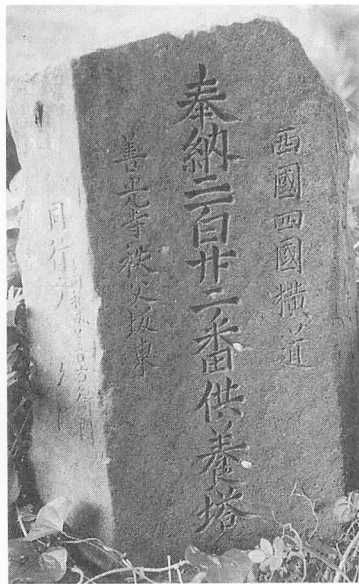 西國四國横道
奉納二百廿二番供養塔
善光寺秩父坂東
同行
吉右衛門